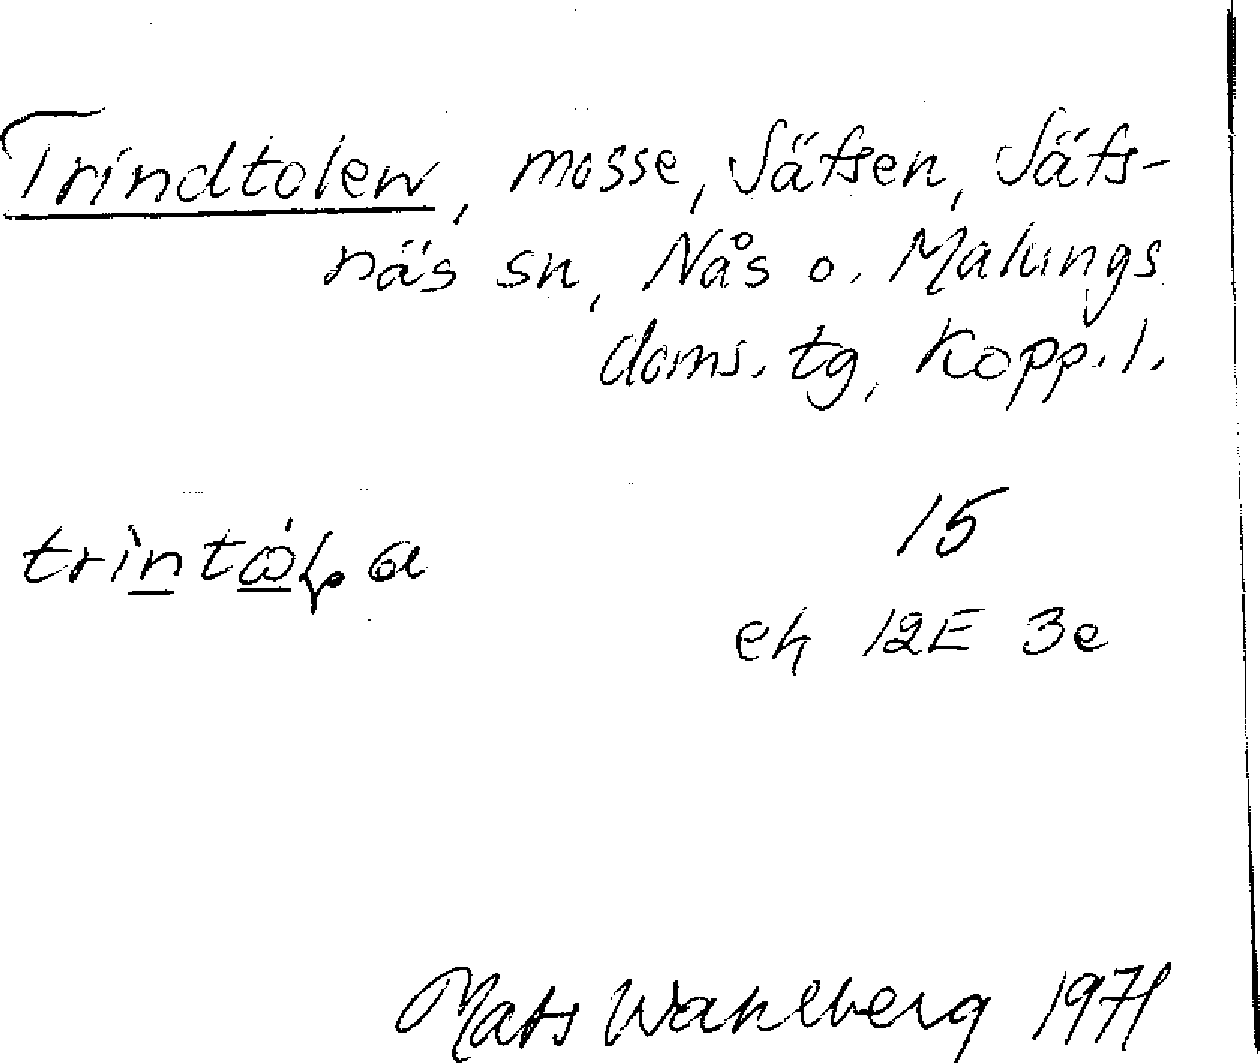 Trindtolen, mosse, Sätsen, Säfs-
näs sn, Nås o. Malungs
doms. tg, Kopp. l.
15
ek 12E 3e
Mats Wahlberg 1971